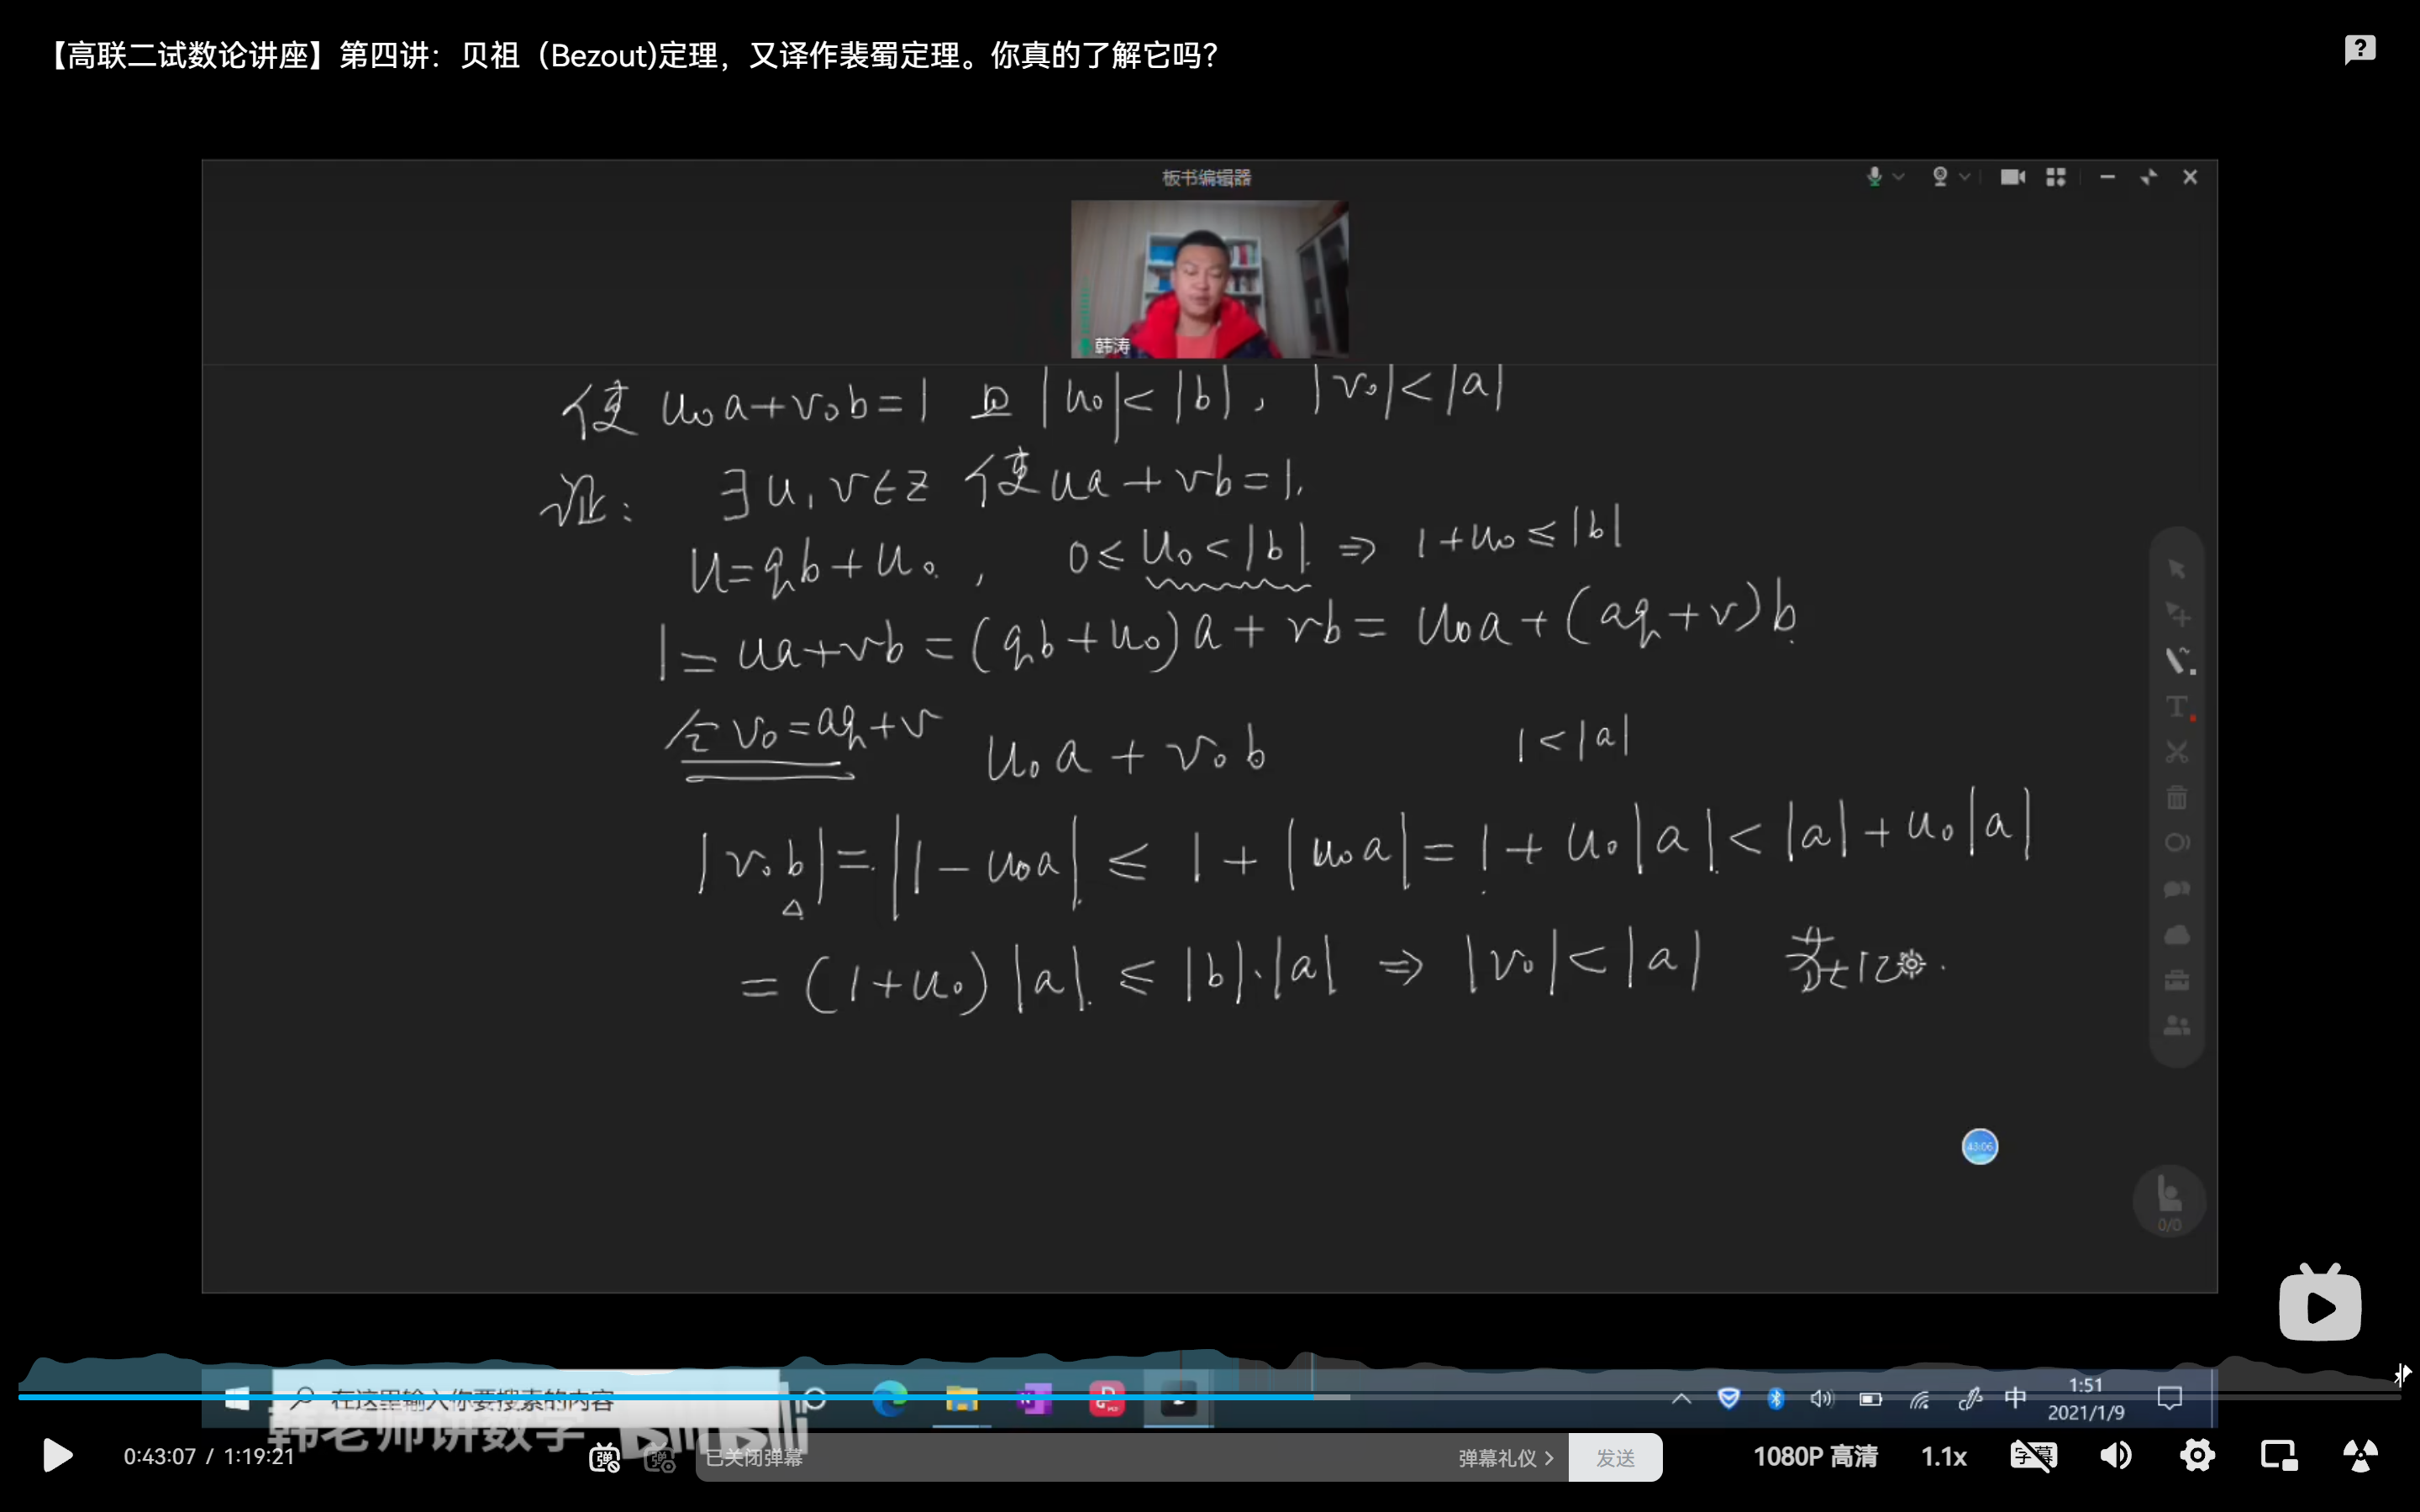 【高联二试数论讲座】第四讲：贝祖（Bezout)定理，又译作裴蜀定理。你真的了解它吗？
板书编辑器
韩涛
使 u₀a+v₀b=1 且 |u₀|<|b|, |v₀|<|a|
证: ∃u,v∈Z 使ua+vb=1,
u=qb+u₀, 0≤u₀<|b| ⇒ 1+u₀≤|b|
1=ua+vb=(qb+u₀)a+vb=u₀a+(aq+v)b
令v₀=aq+v u₀a+v₀b 1<|a|
|v₀b|=|1-u₀a|≤1+|u₀a|=1+u₀|a|<|a|+u₀|a|
=(1+u₀)|a|≤|b|·|a| ⇒ |v₀|<|a|
43:06
0/0
在这里输入你要搜索的内容
中
1:51
2021/1/9
韩老师讲数学
bilibili
0:43:07 / 1:19:21
弹
弹
已关闭弹幕
弹幕礼仪 >
发送
1080P 高清
1.1x
字幕